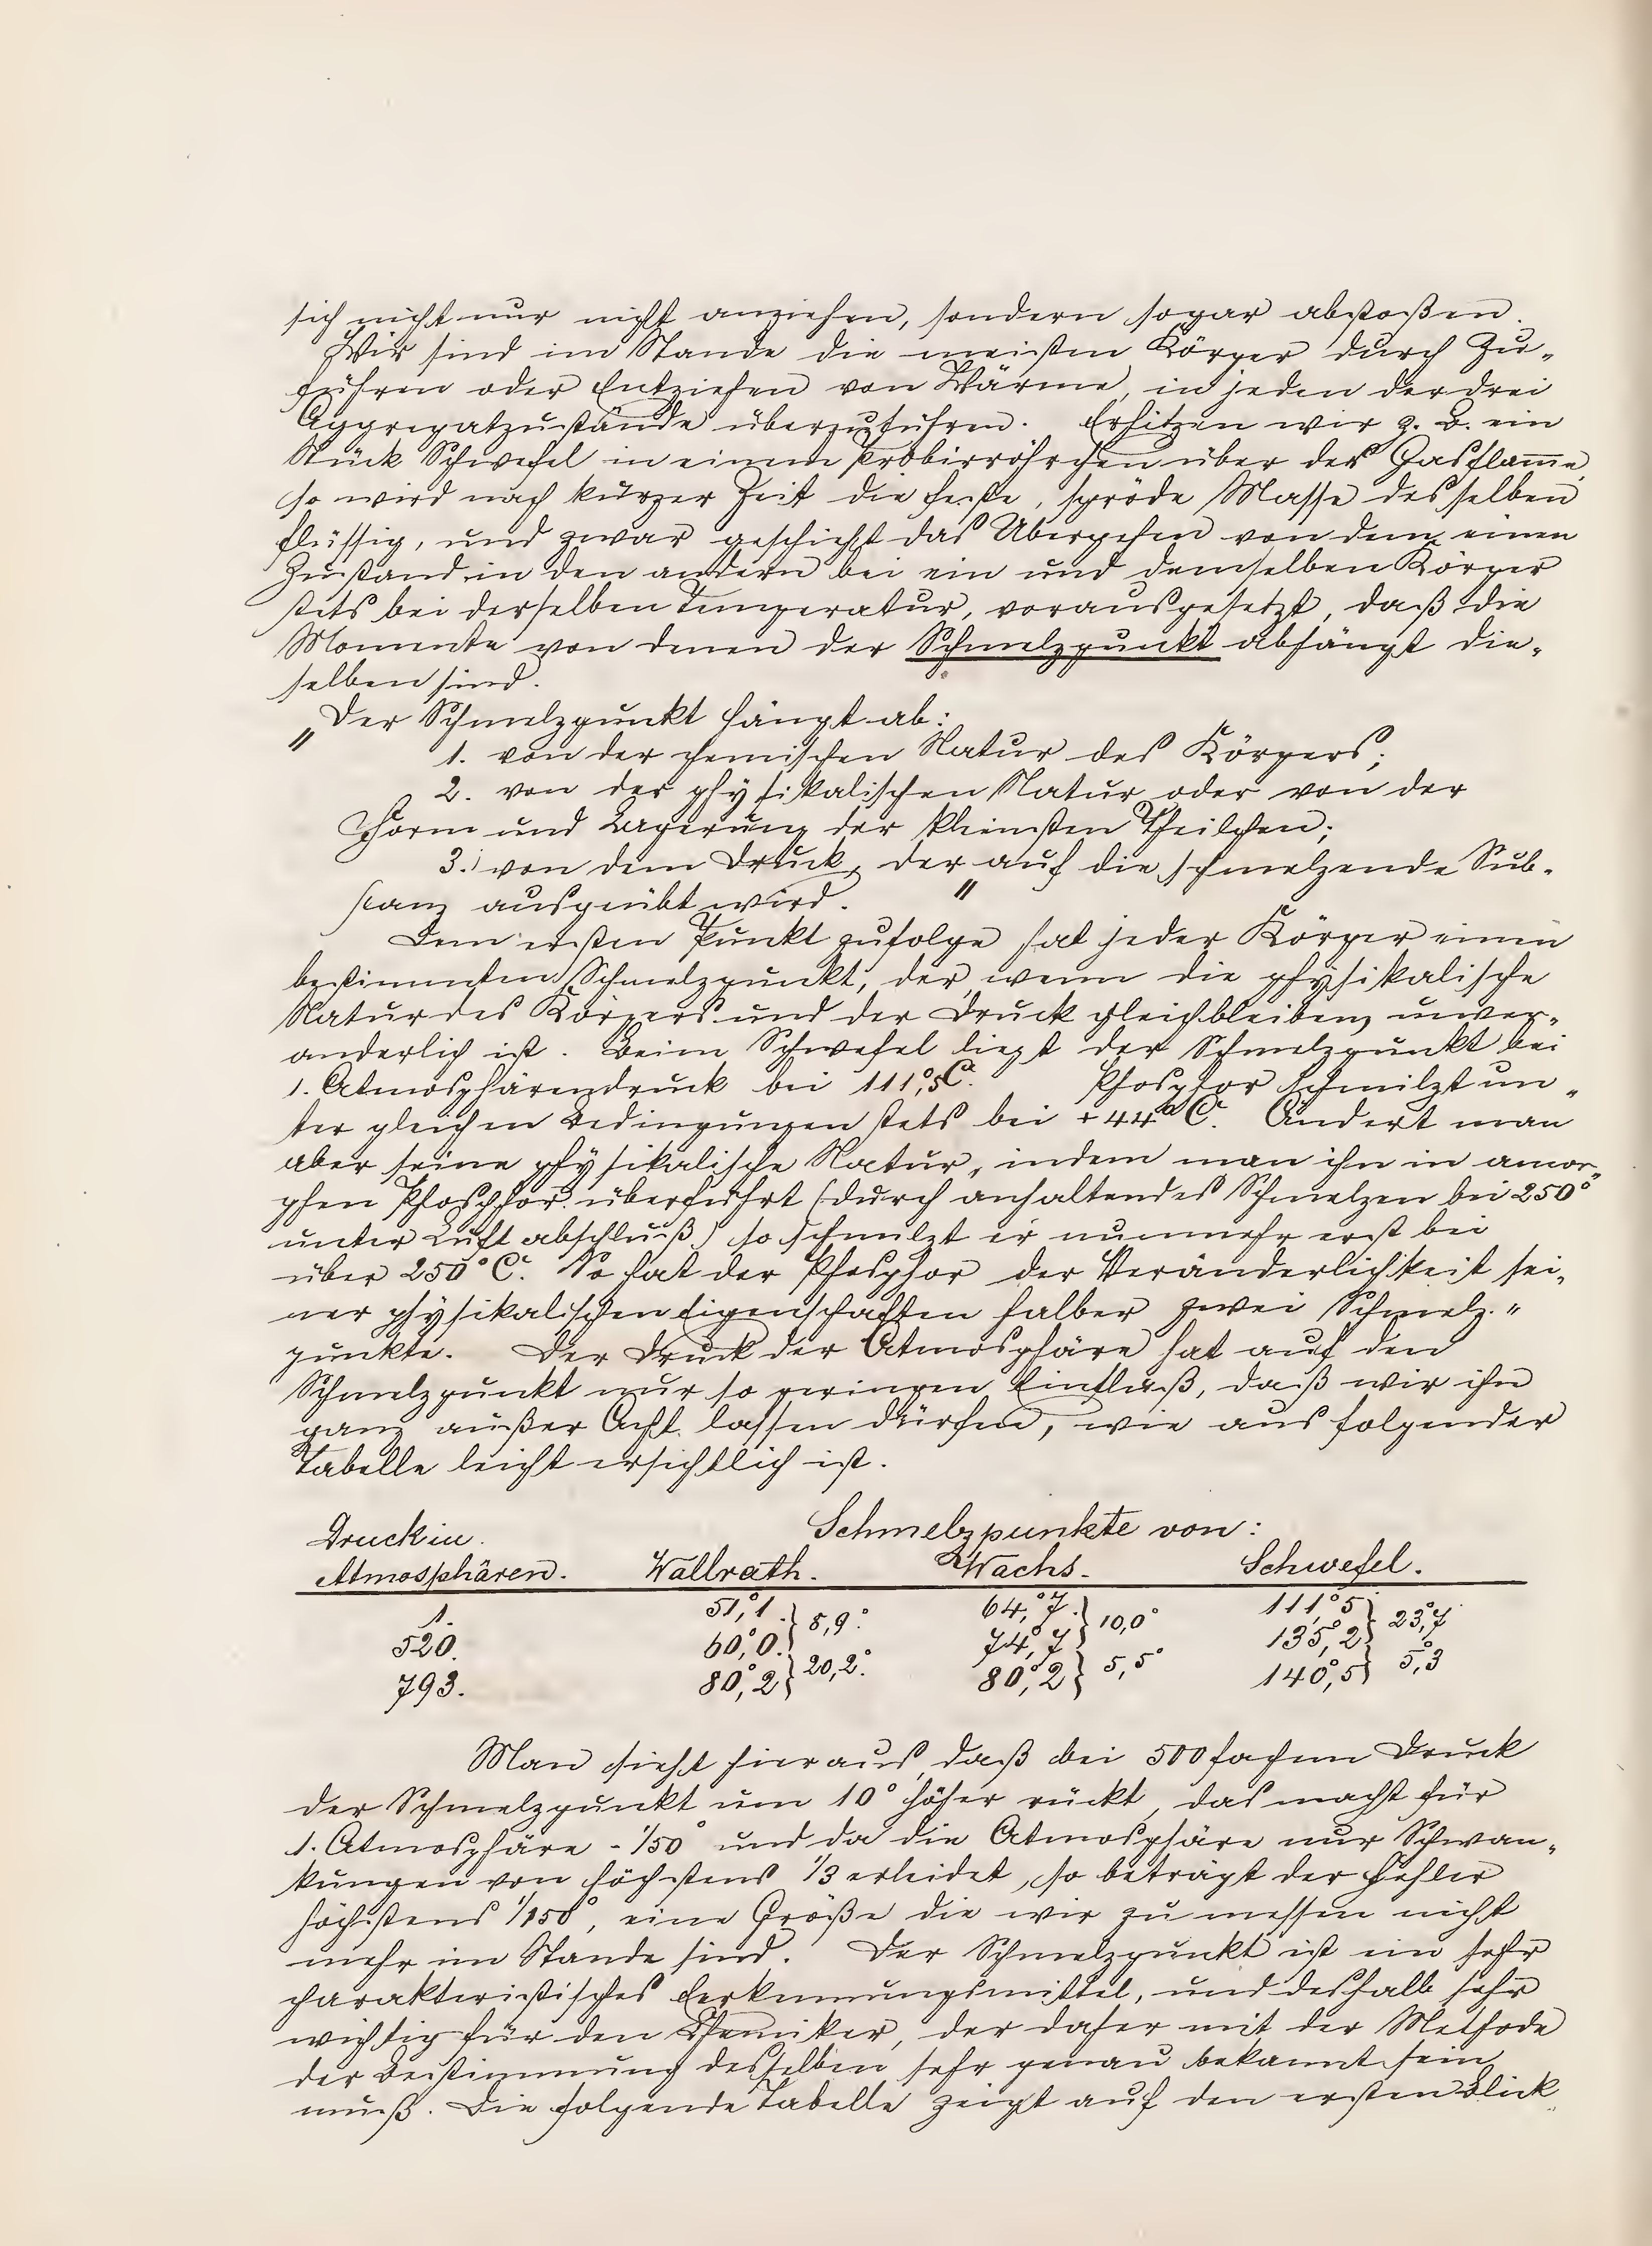 sich nicht nur nicht anziehen, sondern sogar abstoßen.
Wir sind im Stande die meisten Körper durch Zu-
führen oder Entziehen von Wärme, in jeden der drei
Aggregatzustände überzuführen. Erhitzen wir z. B. ein
Stück Schwefel in einem Probirröhrchen über der Gasflam̅e,
so wird nach kurzer Zeit die feste, spröde Masse desselben
flüssig, und zwar geschieht das Übergehen von dem einen
Zustand in den andern bei ein und demselben Körper
stets bei derselben Temperatur, vorausgesetzt, daß die
Momente von denen der Schmelzpunkt abhängt die-
selben sind.
„Der Schmelzpunkt hängt ab:
1. von der chemischen Natur des Körpers;
2. von der physikalischen Natur oder von der
Form und Lagerung der kleinsten Theilchen;
3. von dem Druck, der auf die schmelzende Sub-
stanz ausgeübt wird."
Dem ersten Punkt zufolge hat jeder Körper einen
bestimmten Schmelzpunkt, der, wenn die physikalische
Natur des Körpers und der Druck gleichbleiben, unver-
änderlich ist. Beim Schwefel liegt der Schmelzpunkt bei
1. Atmosphärendruck bei 111,°5 C. Phosphor schmilzt un-
ter gleichen Bedingungen stets bei +44° C. Ändert man
aber seine physikalische Natur, indem man ihn in amor-
phen Phosphor überführt (durch anhaltendes Schmelzen bei 250°
unter Luftabschluß) so schmilzt er nunmehr erst bei
über 250° C. So hat der Phosphor der Veränderlichkeit sei-
ner physikalischen Eigenschaften halber zwei Schmelz-
punkte. Der Druck der Atmosphäre hat auf den
Schmelzpunkt nur so geringen Einfluß, daß wir ihn
ganz außer Acht lassen dürfen, wie aus folgender
Tabelle leicht ersichtlich ist.
Druck in Schmelzpunkte von:
Atmosphären. Wallrath. Wachs. Schwefel.
1. 51,°1 } 8,9° 64,°7 } 10,0° 111,°5 } 23,°7
520. 60,°0 74,°7 135,°2
793. 80,°2 } 20,2° 80,°2 } 5,5° 140,°5 } 5,°3
Man sieht hieraus, daß bei 500 fachem Druck
der Schmelzpunkt um 10° höher rückt, das macht für
1. Atmosphäre - 1/50° und da die Atmosphäre nur Schwan-
kungen von höchstens 1/3 erleidet, so beträgt der Fehler
höchstens 1/150°, eine Größe die wir zu messen nicht
mehr im Stande sind. Der Schmelzpunkt ist ein sehr
charakteristisches Erkennungsmittel, und deshalb sehr
wichtig für den Chemiker, der daher mit der Methode
der Bestimmung desselben sehr genau bekannt sein
muß. Die folgende Tabelle zeigt auf den ersten Blick